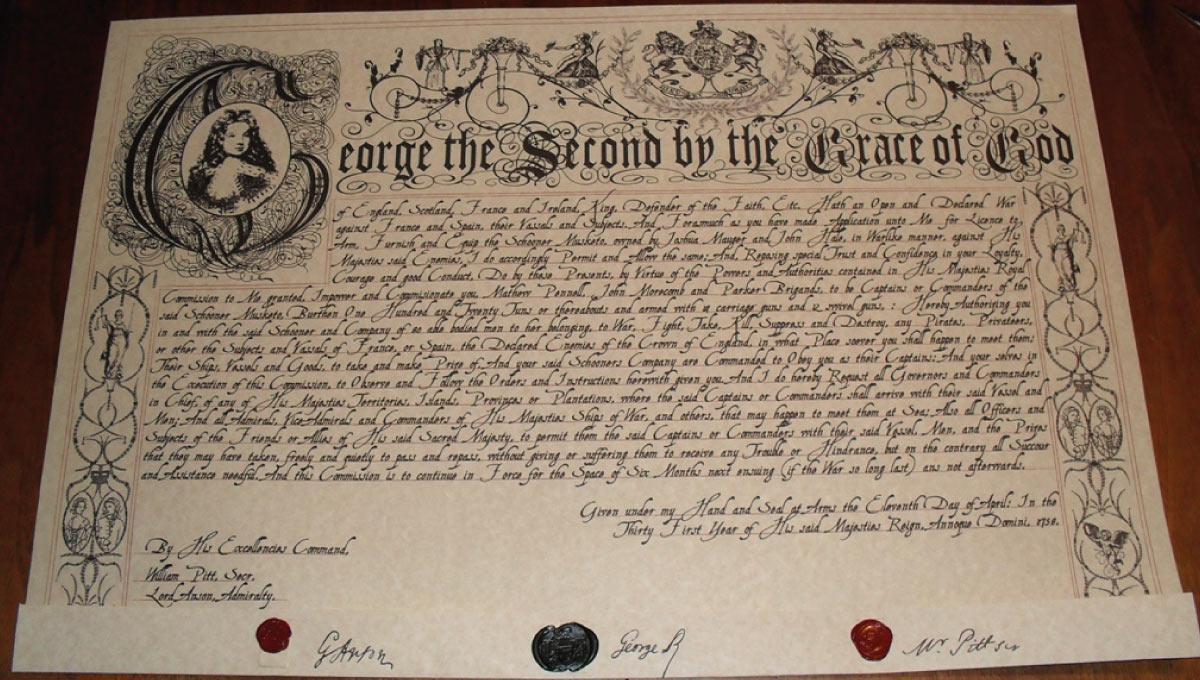 George the Second by the Grace of God
of England, Scotland, France and Ireland, King, Defender of the Faith, Etc. Hath an Open and Declared War
against France and Spain, their Vassals and Subjects. And, Forasmuch as you have made Application unto Me for Licence to
Arm, Furnish and Equip the Schooner Musketo, owned by Joshua Mauger and John Hale, in Warlike manner, against His
Majesties said Enemies, I do accordingly Permit and Allow the same; And, Reposing special Trust and Confidence in your Loyalty,
Courage and good Conduct, Do by these Presents, by Virtue of the Powers and Authorities contained in His Majesties Royal
Commission to Me granted, Impower and Commisionate you, Mathew Pennell, John Morecomb and Parker Brigands, to be Captains or Commanders of the
said Schooner Musketo, Burthen One Hundred and Twenty Tuns or thereabouts and armed with carriage guns and 12 swivel guns, : Hereby Authorizing you
in and with the said Schooner and Company of 80 able bodied men to her belonging, to War, Fight, Take, Kill, Suppress and Destroy, any Pirates, Privateers,
or other the Subjects and Vassals of France, or Spain, the Declared Enemies of the Crown of England, in what Place soever you shall happen to meet them;
Their Ships, Vessels and Goods, to take and make Prize of. And your said Schooners Company are Commanded to Obey you as their Captains: And your selves in
the Execution of this Commission, to Observe and Follow the Orders and Instructions herewith given you. And I do hereby Request all Governors and Commanders
in Chief, of any of His Majesties Territories, Islands, Provinces or Plantations, where the said Captains or Commanders shall arrive with their said Vessel and
Men; And all Admirals, Vice-Admirals and Commanders of His Majesties Ships of War, and others, that may happen to meet them at Sea; Also all Officers and
Subjects of the Friends or Allies of His said Sacred Majesty, to permit them the said Captains or Commanders with their said Vessel, Men, and the Prizes
that they may have taken, freely and quietly to pass and repass, without giving or suffering them to receive any Trouble or Hindrance, but on the contrary all Succour
and Assistance needful. And this Commission is to continue in Force for the Space of Six Months next ensuing (if the War so long last) ans not afterwards.
Given under my Hand and Seal at Arms the Eleventh Day of April: In the
Thirty First Year of His said Majesties Reign, Annoque Domini, 1758.
By His Excellencies Command,
William Pitt, Secr.
Lord Anson, Admiralty.
G Anson
George R
Mr. Pitt Scr